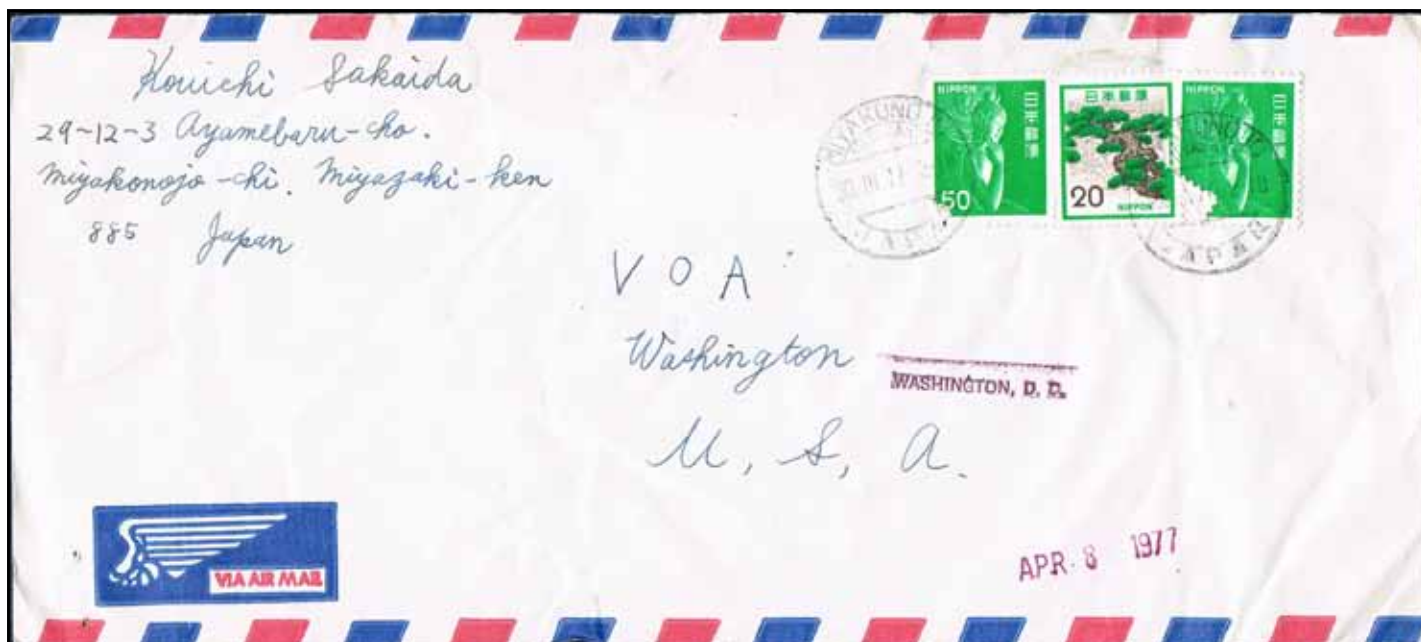 Kouichi Sakaida
29-12-3 Ayamebaru-cho.
Miyakonojo-chi. Miyazaki-ken
885 Japan
NIPPON
日本郵便
50
日本郵便
20
NIPPON
NIPPON
日本郵便
JAPAN
JAPAN
V O A
Washington
WASHINGTON, D. C.
U, S, A.
VIA AIR MAIL
APR 8 1977